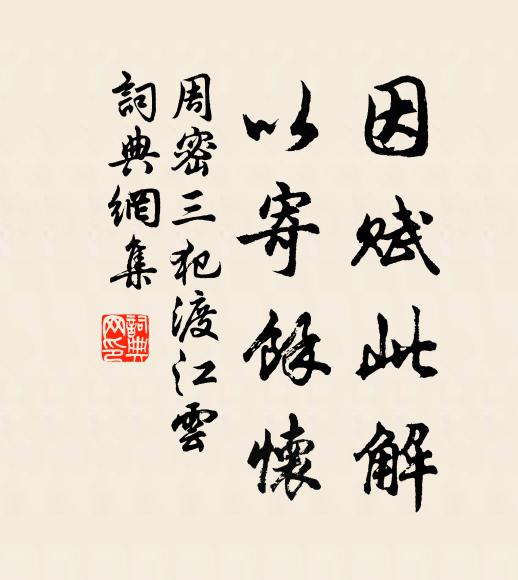 因賦此解
以寄餘懷
周密三犯渡江雲
詞典網集
詞典
网印